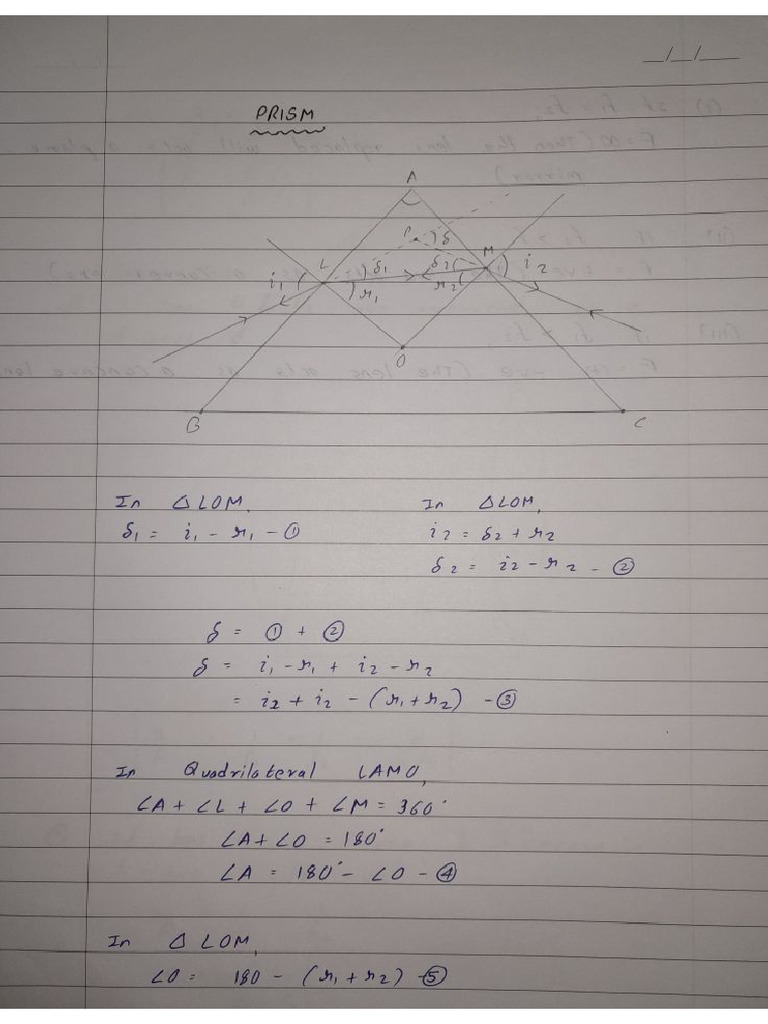 _/_/__
PRISM
A
P
δ
L
M
i₁
δ₁
δ₂
i₂
r₁
r₂
O
B
C
In △LOM,
δ₁ = i₁ - r₁ - ①
In △LOM,
i₂ = δ₂ + r₂
δ₂ = i₂ - r₂ - ②
δ = ① + ②
δ = i₁ - r₁ + i₂ - r₂
= i₂ + i₂ - (r₁ + r₂) - ③
In Quadrilateral LAMO,
∠A + ∠L + ∠O + ∠M = 360°
∠A + ∠O = 180°
∠A = 180° - ∠O - ④
In △ LOM,
∠O = 180 - (r₁ + r₂) - ⑤